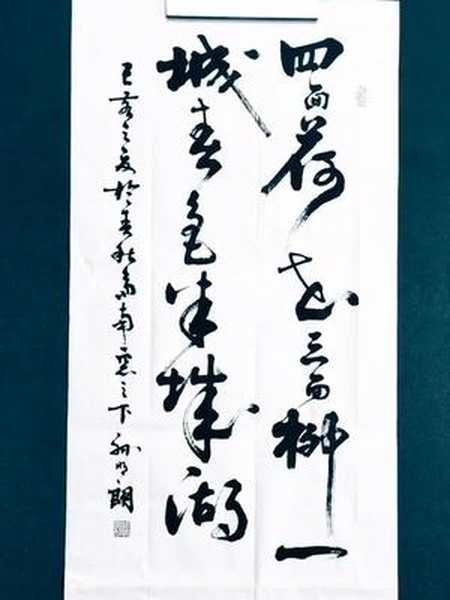 四面荷花三面柳一
城春色半城湖
己亥之夏於春秋南窗之下 孙明朗